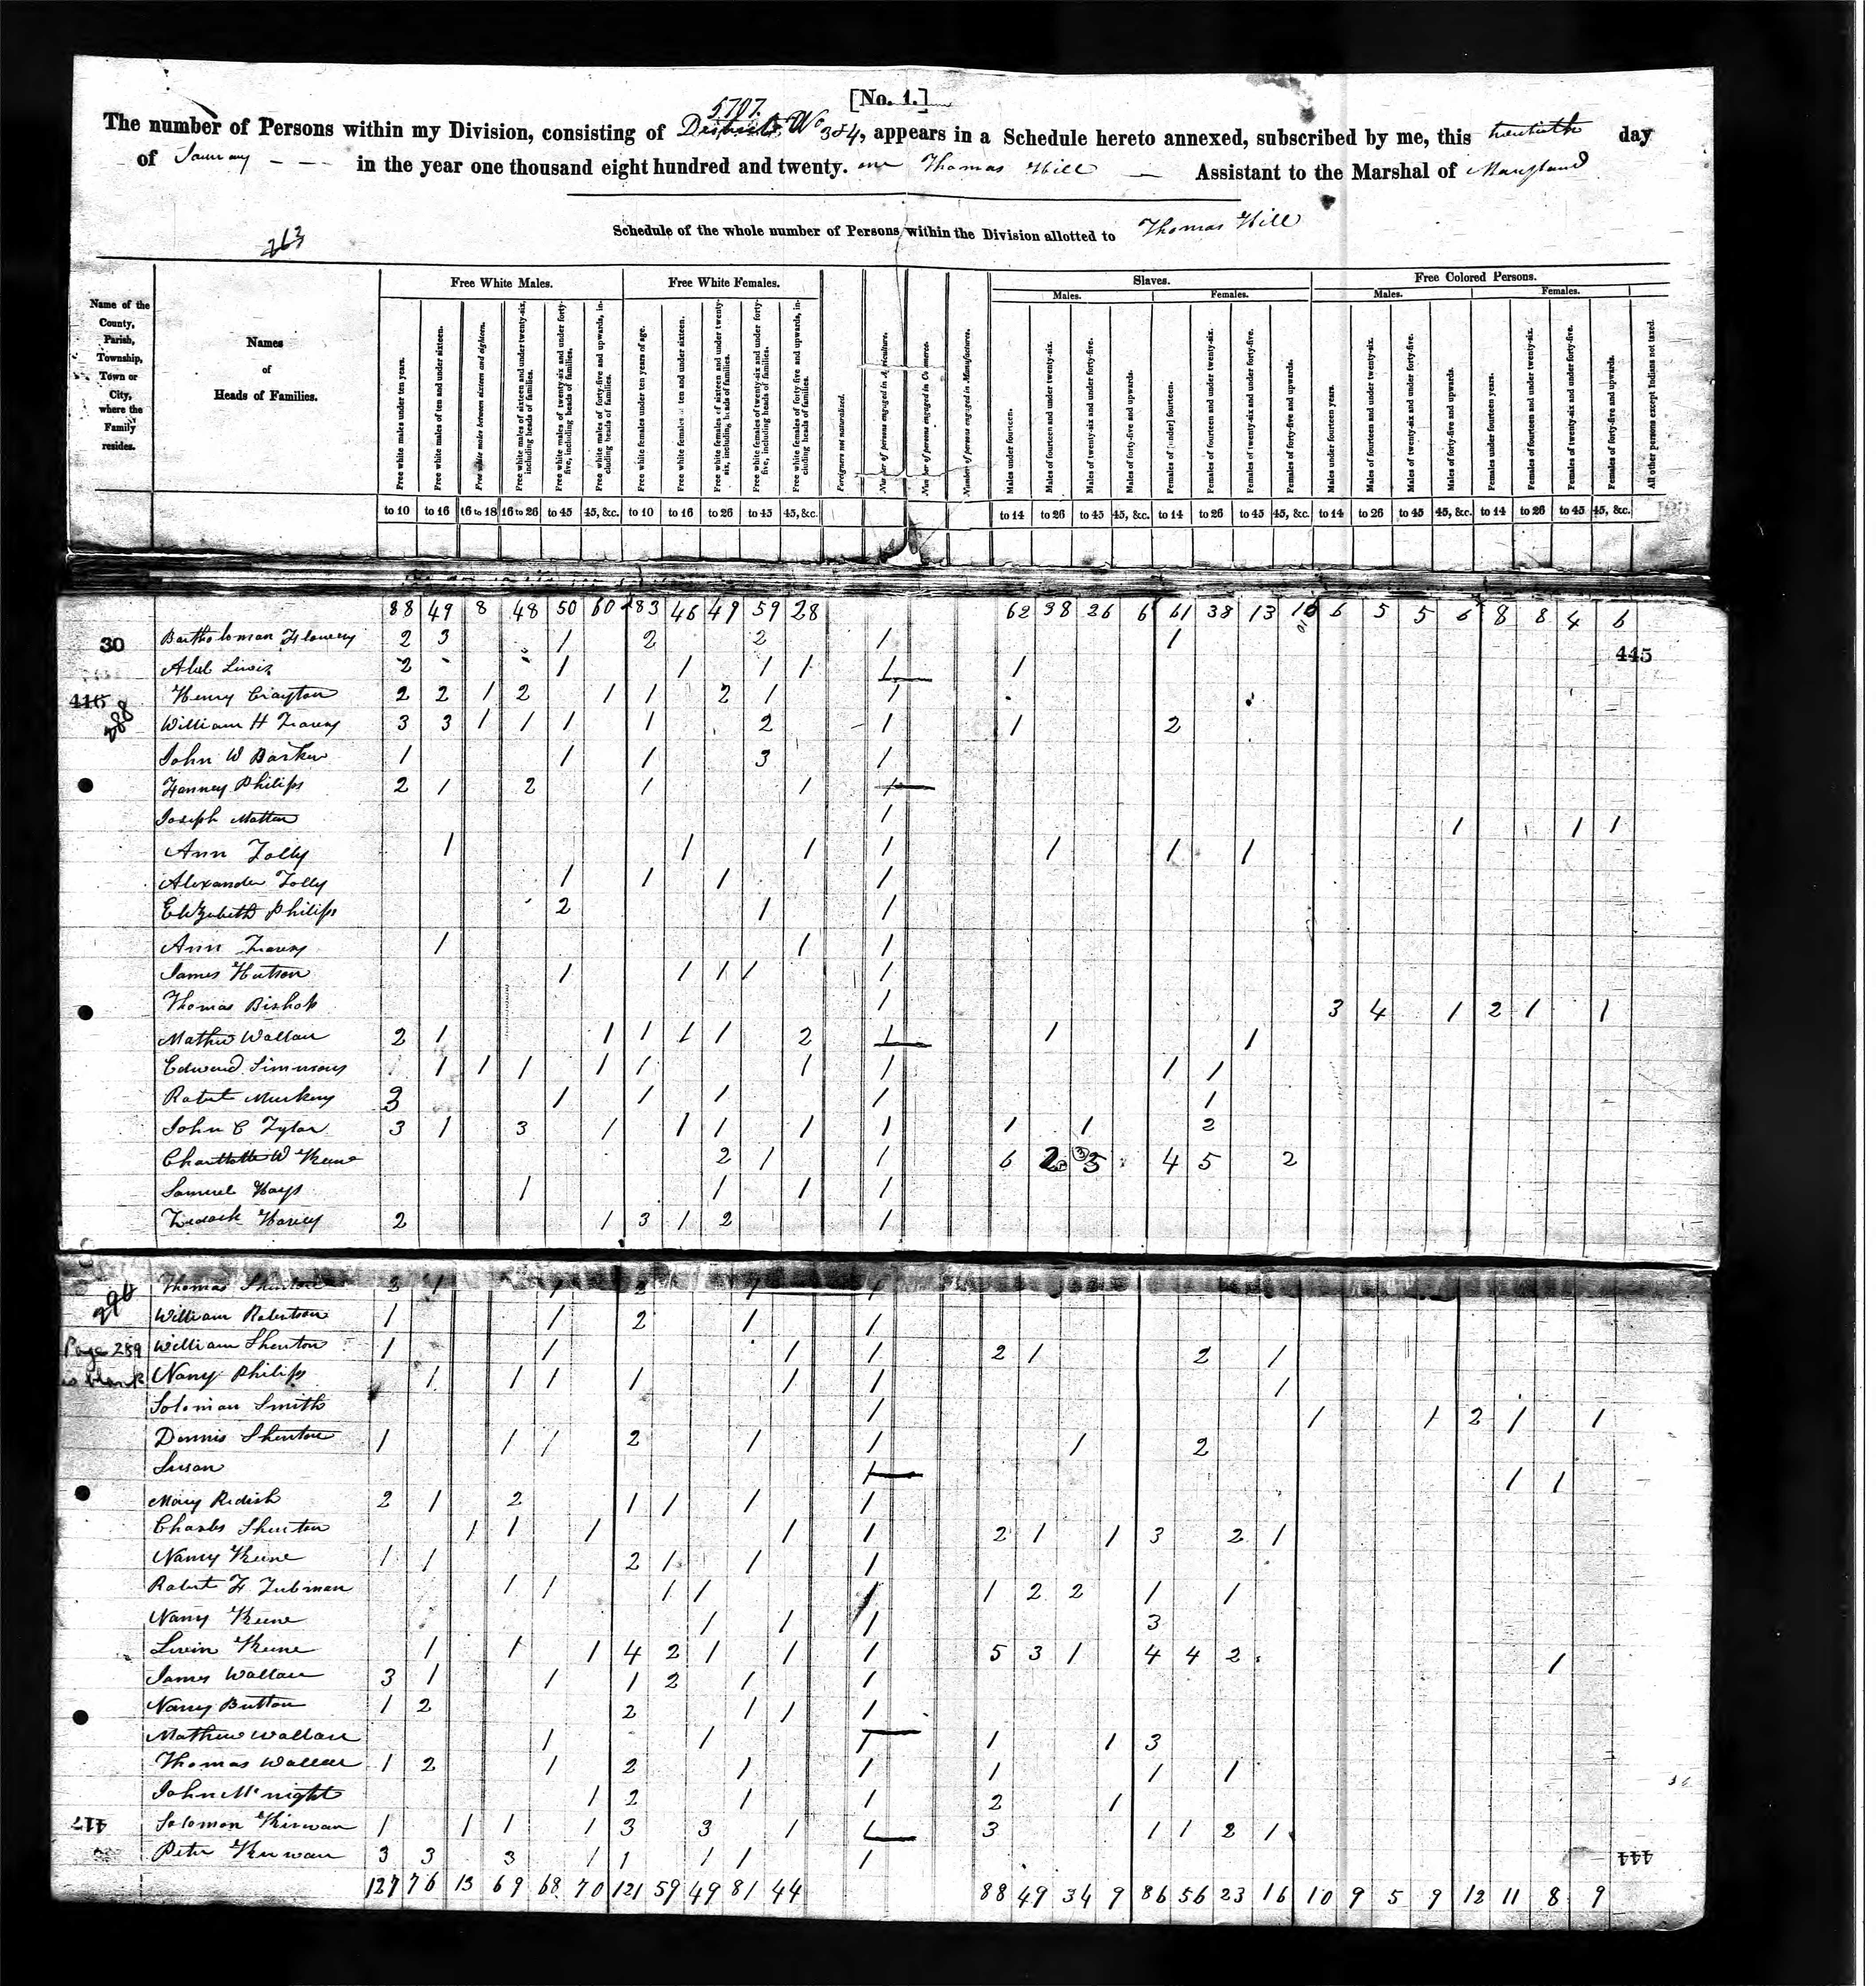 [No. 1.]
5707.
The number of Persons within my Division, consisting of District No 3 & 4, appears in a Schedule hereto annexed, subscribed by me, this twentieth day
of January - - - in the year one thousand eight hundred and twenty. one Thomas Hill — Assistant to the Marshal of Maryland
Schedule of the whole number of Persons within the Division allotted to Thomas Hill
263
Name of the County, Parish, Township, Town or City, where the Family resides.
Names of Heads of Families.
Free White Males.
Free white males under ten years.
Free white males of ten and under sixteen.
Free white males between sixteen and eighteen.
Free white males of sixteen and under twenty-six, including heads of families.
Free white males of twenty-six and under forty-five, including heads of families.
Free white males of forty-five and upwards, including heads of families.
Free White Females.
Free white females under ten years of age.
Free white females of ten and under sixteen.
Free white females of sixteen and under twenty-six, including heads of families.
Free white females of twenty-six and under forty-five, including heads of families.
Free white females of forty five and upwards, including heads of families.
Foreigners not naturalized.
Number of persons engaged in Agriculture.
Number of persons engaged in Commerce.
Number of persons engaged in Manufactures.
Slaves.
Males.
Males under fourteen.
Males of fourteen and under twenty-six.
Males of twenty-six and under forty-five.
Males of forty-five and upwards.
Females.
Females of [under] fourteen.
Females of fourteen and under twenty-six.
Females of twenty-six and under forty-five.
Females of forty-five and upwards.
Free Colored Persons.
Males.
Males under fourteen years.
Males of fourteen and under twenty-six.
Males of twenty-six and under forty-five.
Males of forty-five and upwards.
Females.
Females under fourteen years.
Females of fourteen and under twenty-six.
Females of twenty-six and under forty-five.
Females of forty-five and upwards.
All other persons except Indians not taxed.
to 10 to 16 16 to 18 16 to 26 to 45 45, &c. to 10 to 16 to 26 to 45 45, &c. to 14 to 26 to 45 45, &c. to 14 to 26 to 45 45, &c. to 14 to 26 to 45 45, &c. to 14 to 26 to 45 45, &c.
88 49 8 48 50 60 83 46 49 59 28 62 38 26 6 61 38 13 10 6 5 5 6 8 8 4 6
30 Bartholoman Flowery 2 3 1 2 2 1 1
445
Abel Lewis 2 1 1 1 1 1 1
416 Henry Crayton 2 2 1 2 1 1 2 1 1
288 William H Travers 3 3 1 1 1 1 2 1 1 2
John W Barker 1 1 1 3 1
Fanney Philips 2 1 2 1 1 1
Joseph Matten 1 1 1 1
Ann Tolly 1 1 1 1 1 1 1
Alexander Tolly 1 1 1 1
Elizabeth Philips 2 1 1
Ann Travers 1 1 1
James Hutson 1 1 1 1 1
Thomas Bishop 1 3 4 1 2 1 1
Mathew Wallace 2 1 1 1 1 1 2 1 1 1
Edward Simmons 1 1 1 1 1 1 1 1 1
Robert 3 1 1 1 1 1
John C Tylor 3 1 3 1 1 1 1 1 1 1 2
Charlotte W Keene 2 1 1 6 2 3 4 5 2
Samuel Hays 1 1 1 1
Harvey 2 1 3 1 2 1
Thomas Shenton 3 1 1 2 1 1
290 William Robertson 1 1 2 1 1
Page 289 William Shenton 1 1 1 1 2 1 2 1
is blank Nancy Philips 1 1 1 1 1 1 1
Solomon Smith 1 1 1 2 1 1
Dennis Shenton 1 1 1 2 1 1 1 2
Susan 1 1 1
Mary Redish 2 1 2 1 1 1 1
Charles Shenton 1 1 1 1 1 2 1 1 3 2 1
Nancy Keene 1 1 2 1 1 1
Robert F Tubman 1 1 1 1 1 1 2 2 1 1
Nancy Keene 1 1 1 3
Levin Keene 1 1 1 4 2 1 1 1 5 3 1 4 4 2 1
James Wallace 3 1 1 1 2 1 1
Nancy Button 1 2 2 1 1 1
Mathew Wallace 1 1 1 1 1 3
Thomas Wallace 1 2 1 2 1 1 1 1 1
John McNight 1 2 1 1 2 1
417 Solomon Kirwan 1 1 1 1 3 3 1 1 3 1 1 2 1
Peter Kirwan 3 3 3 1 1 1 1 1
444
127 76 13 69 68 70 121 59 49 81 44 88 49 34 9 86 56 23 16 10 9 5 9 12 11 8 9